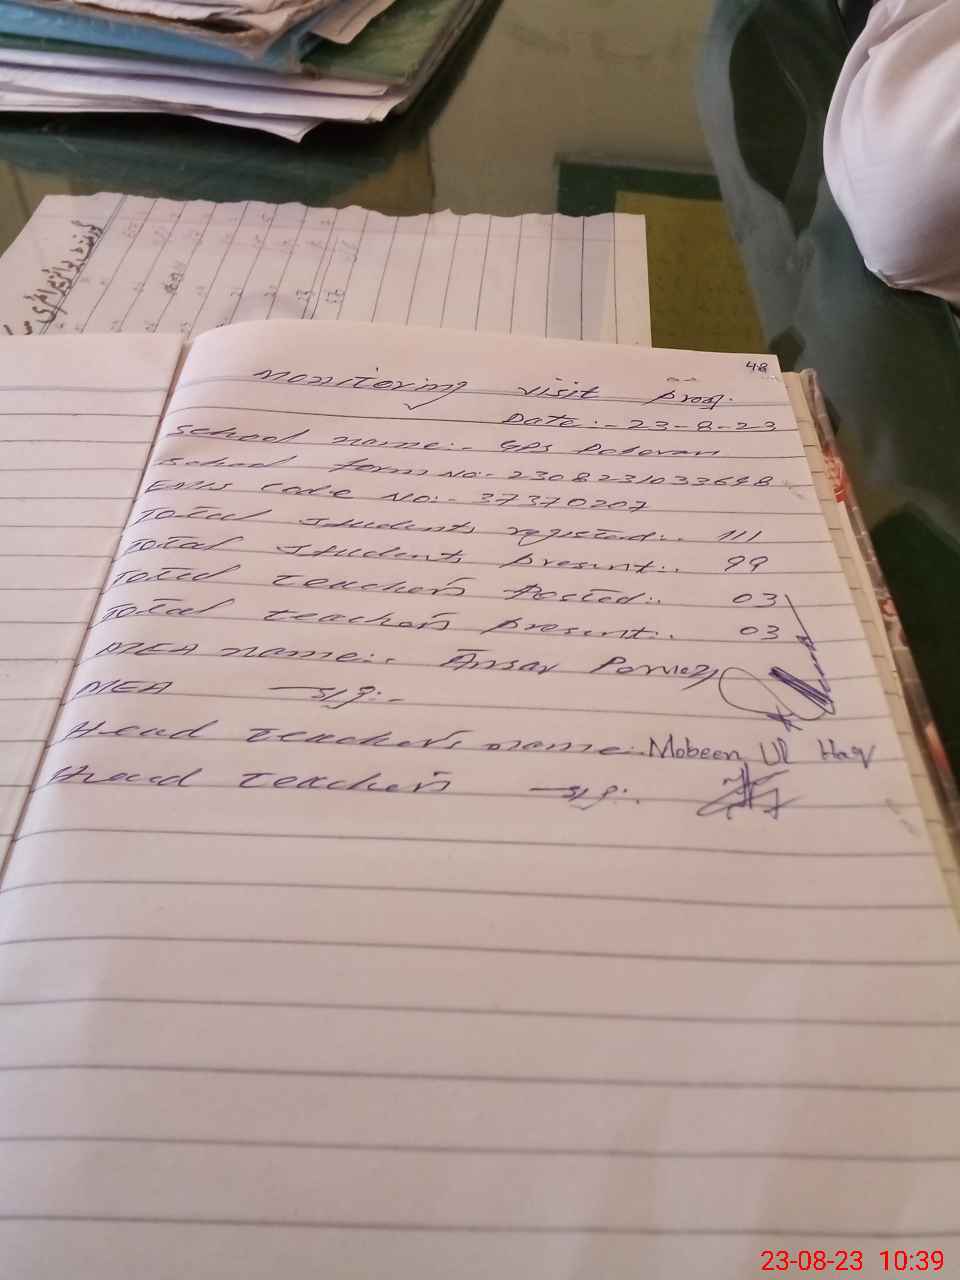 48
Monitoring visit proof.
Date:- 23-8-23
School name:- GPS Pcheran
School form No:- 2308231033648
EMIS Code No:- 37370207
Total Students registered:. 111
Total Students present:. 99
Total teacher's Posted:. 03
Total teacher's present:. 03
MEA name:. Ansar Pervez
MEA sig:-
Head teacher's name:. Mobeen Ul Haq
Head teacher's sig:.
23-08-23 10:39